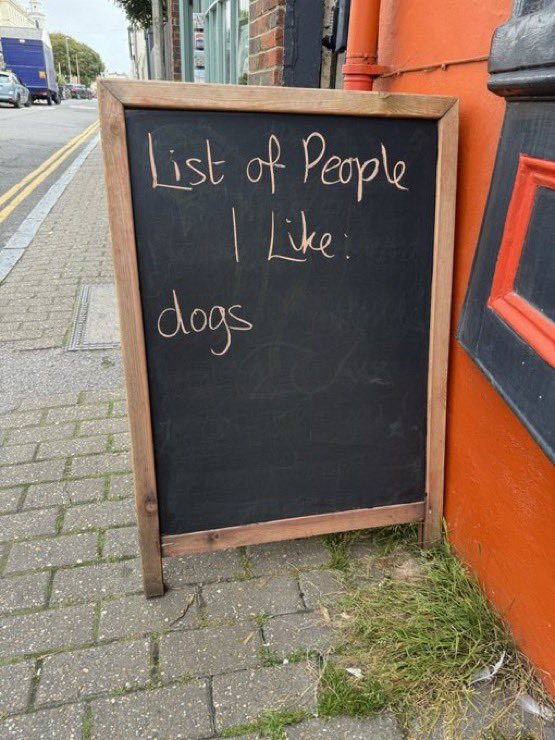 List of People
I Like:
dogs